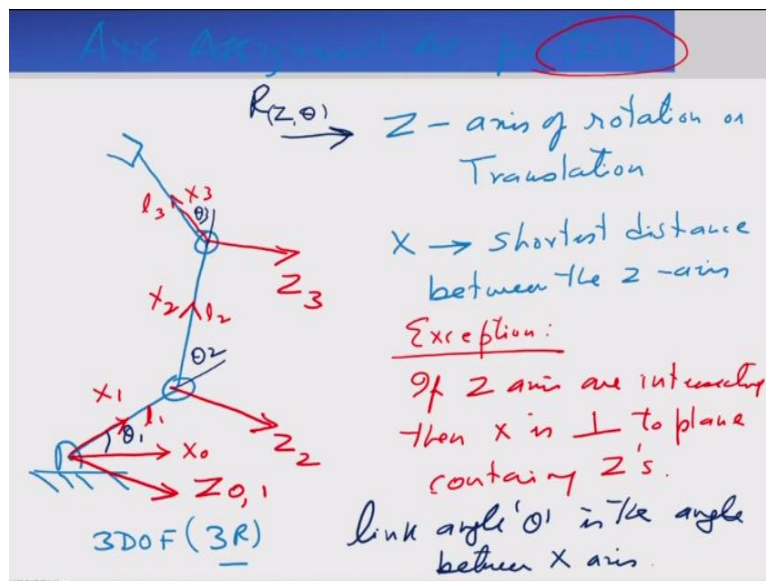 Axis Assignment as per (DH)
R(Z, θ)
Z - axis of rotation or
Translation
X → shortest distance
between the z-axis
Exception:
If Z axis are intersecting
then X is ⊥ to plane
containing Z's.
link angle 'θ' is the angle
between X axis.
l3 X3
θ3
Z3
X2 l2
θ2
X1
l1
θ1
X0
Z2
Z0,1
3DOF (3R)